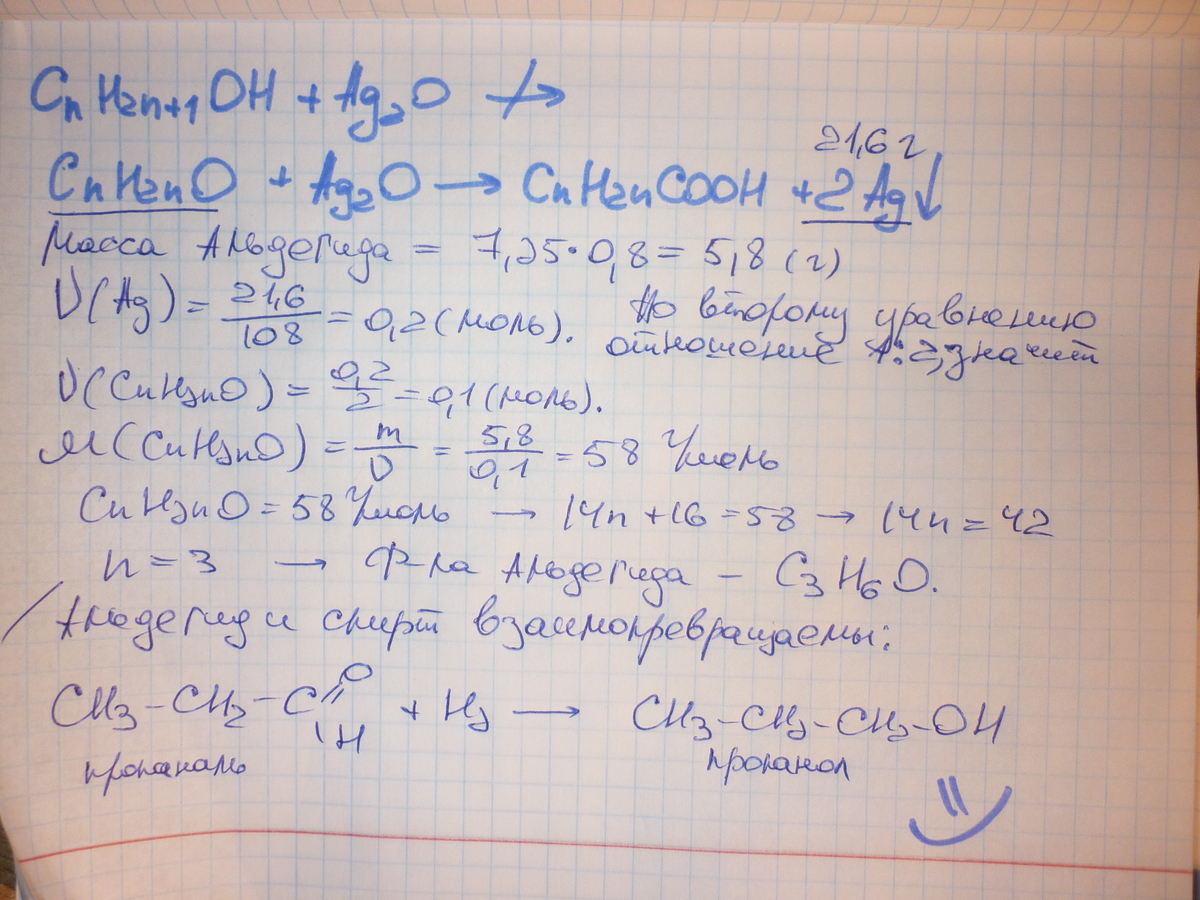 CnH2n+1OH + Ag2O ↛
21,6 г
CnH2nO + Ag2O → CnH2nCOOH + 2Ag↓
Масса Альдегида = 7,25·0,8 = 5,8 (г)
ν(Ag) = 21,6/108 = 0,2 (моль). По второму уравнению
отношение 1:2, значит
ν(CnH2nO) = 0,2/2 = 0,1 (моль).
M(CnH2nO) = m/ν = 5,8/0,1 = 58 г/моль
CnH2nO = 58 г/моль → 14n + 16 = 58 → 14n = 42
n = 3 → Ф-ла Альдегида – C3H6O.
Альдегид и спирт взаимопревращаемы:
CH3–CH2–C=O H + H2 → CH3–CH2–CH2–OH
пропаналь пропанол